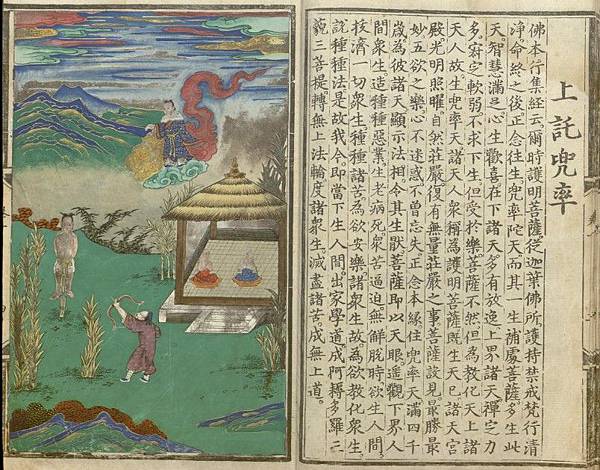 上託兜率
佛本行集經云爾時護明菩薩從迦葉佛所護持禁戒梵行清
淨命終之後正念往生兜率陀天而其一生補處菩薩多生此
天智慧滿足心生歡喜在下諸天多有放逸上界諸天禪定力
多寂定軟弱不求下生但受於樂菩薩不然但為教化天上諸
天人故生兜率天諸天人衆稱為護明菩薩既生天已諸天宮
殿光明照曜自然莊嚴復有無量莊嚴之事菩薩設見最勝最
妙五欲之樂心不迷惑不曾忘失正念本緣住兜率天滿四千
歲為彼諸天顯示法相令其生猒菩薩即以天眼遥觀下界人
間衆生造種種惡業生老病死衆苦逼迫無解脫時欲生人間
抜濟一切衆生種種諸苦為欲安樂諸衆生故為欲教化衆生
説種種法是故我今即當下生人間出家學道成阿耨多羅三
藐三菩提轉無上法輪度諸衆生滅盡諸苦成無上道